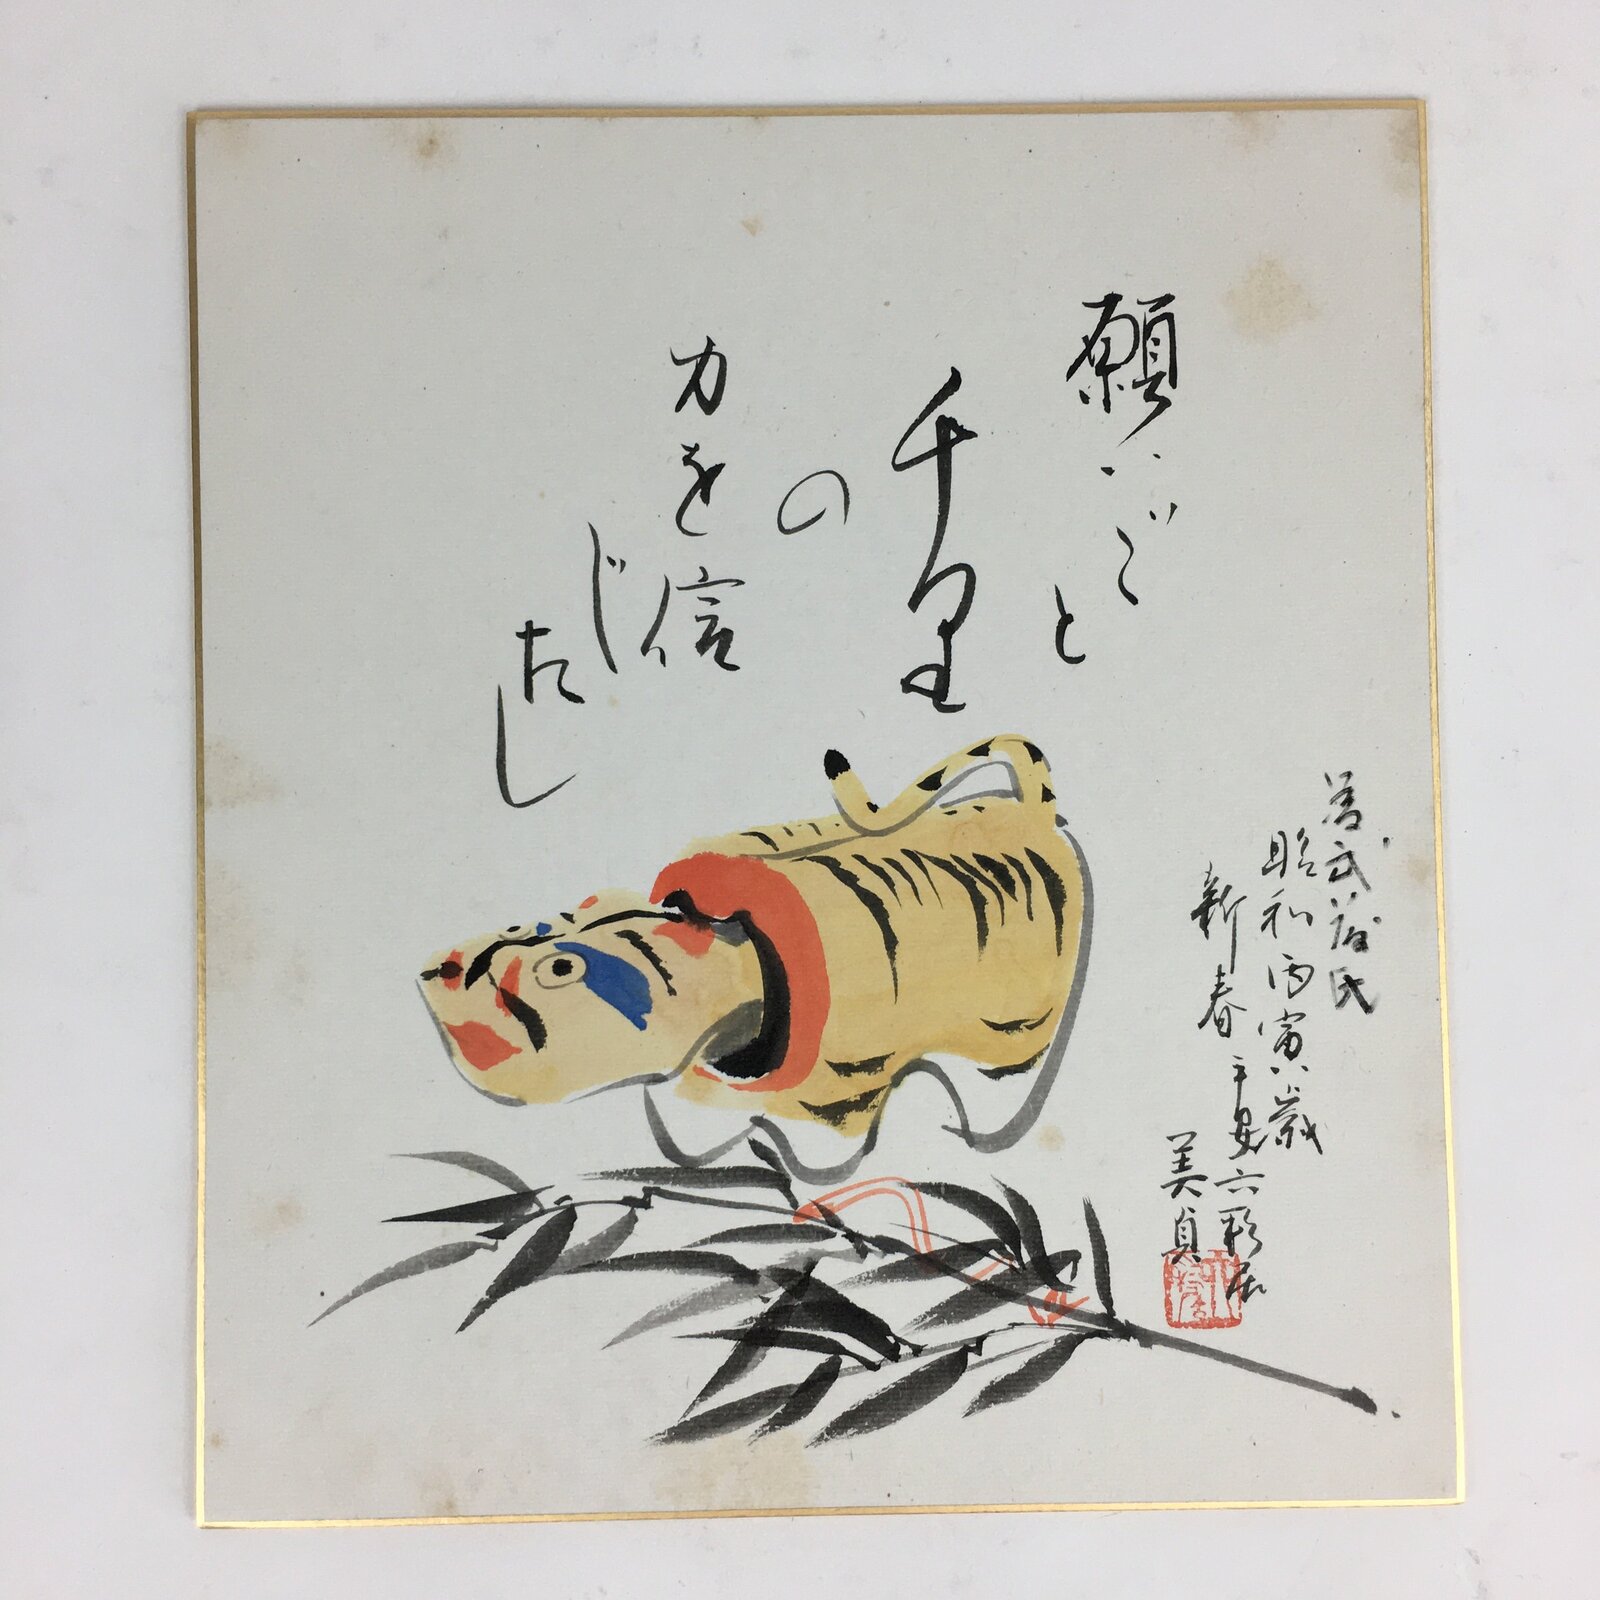 願いごと
千里
の
力を信
じ
たし
昭和丙寅歳
新春 平安六彩居
美貞